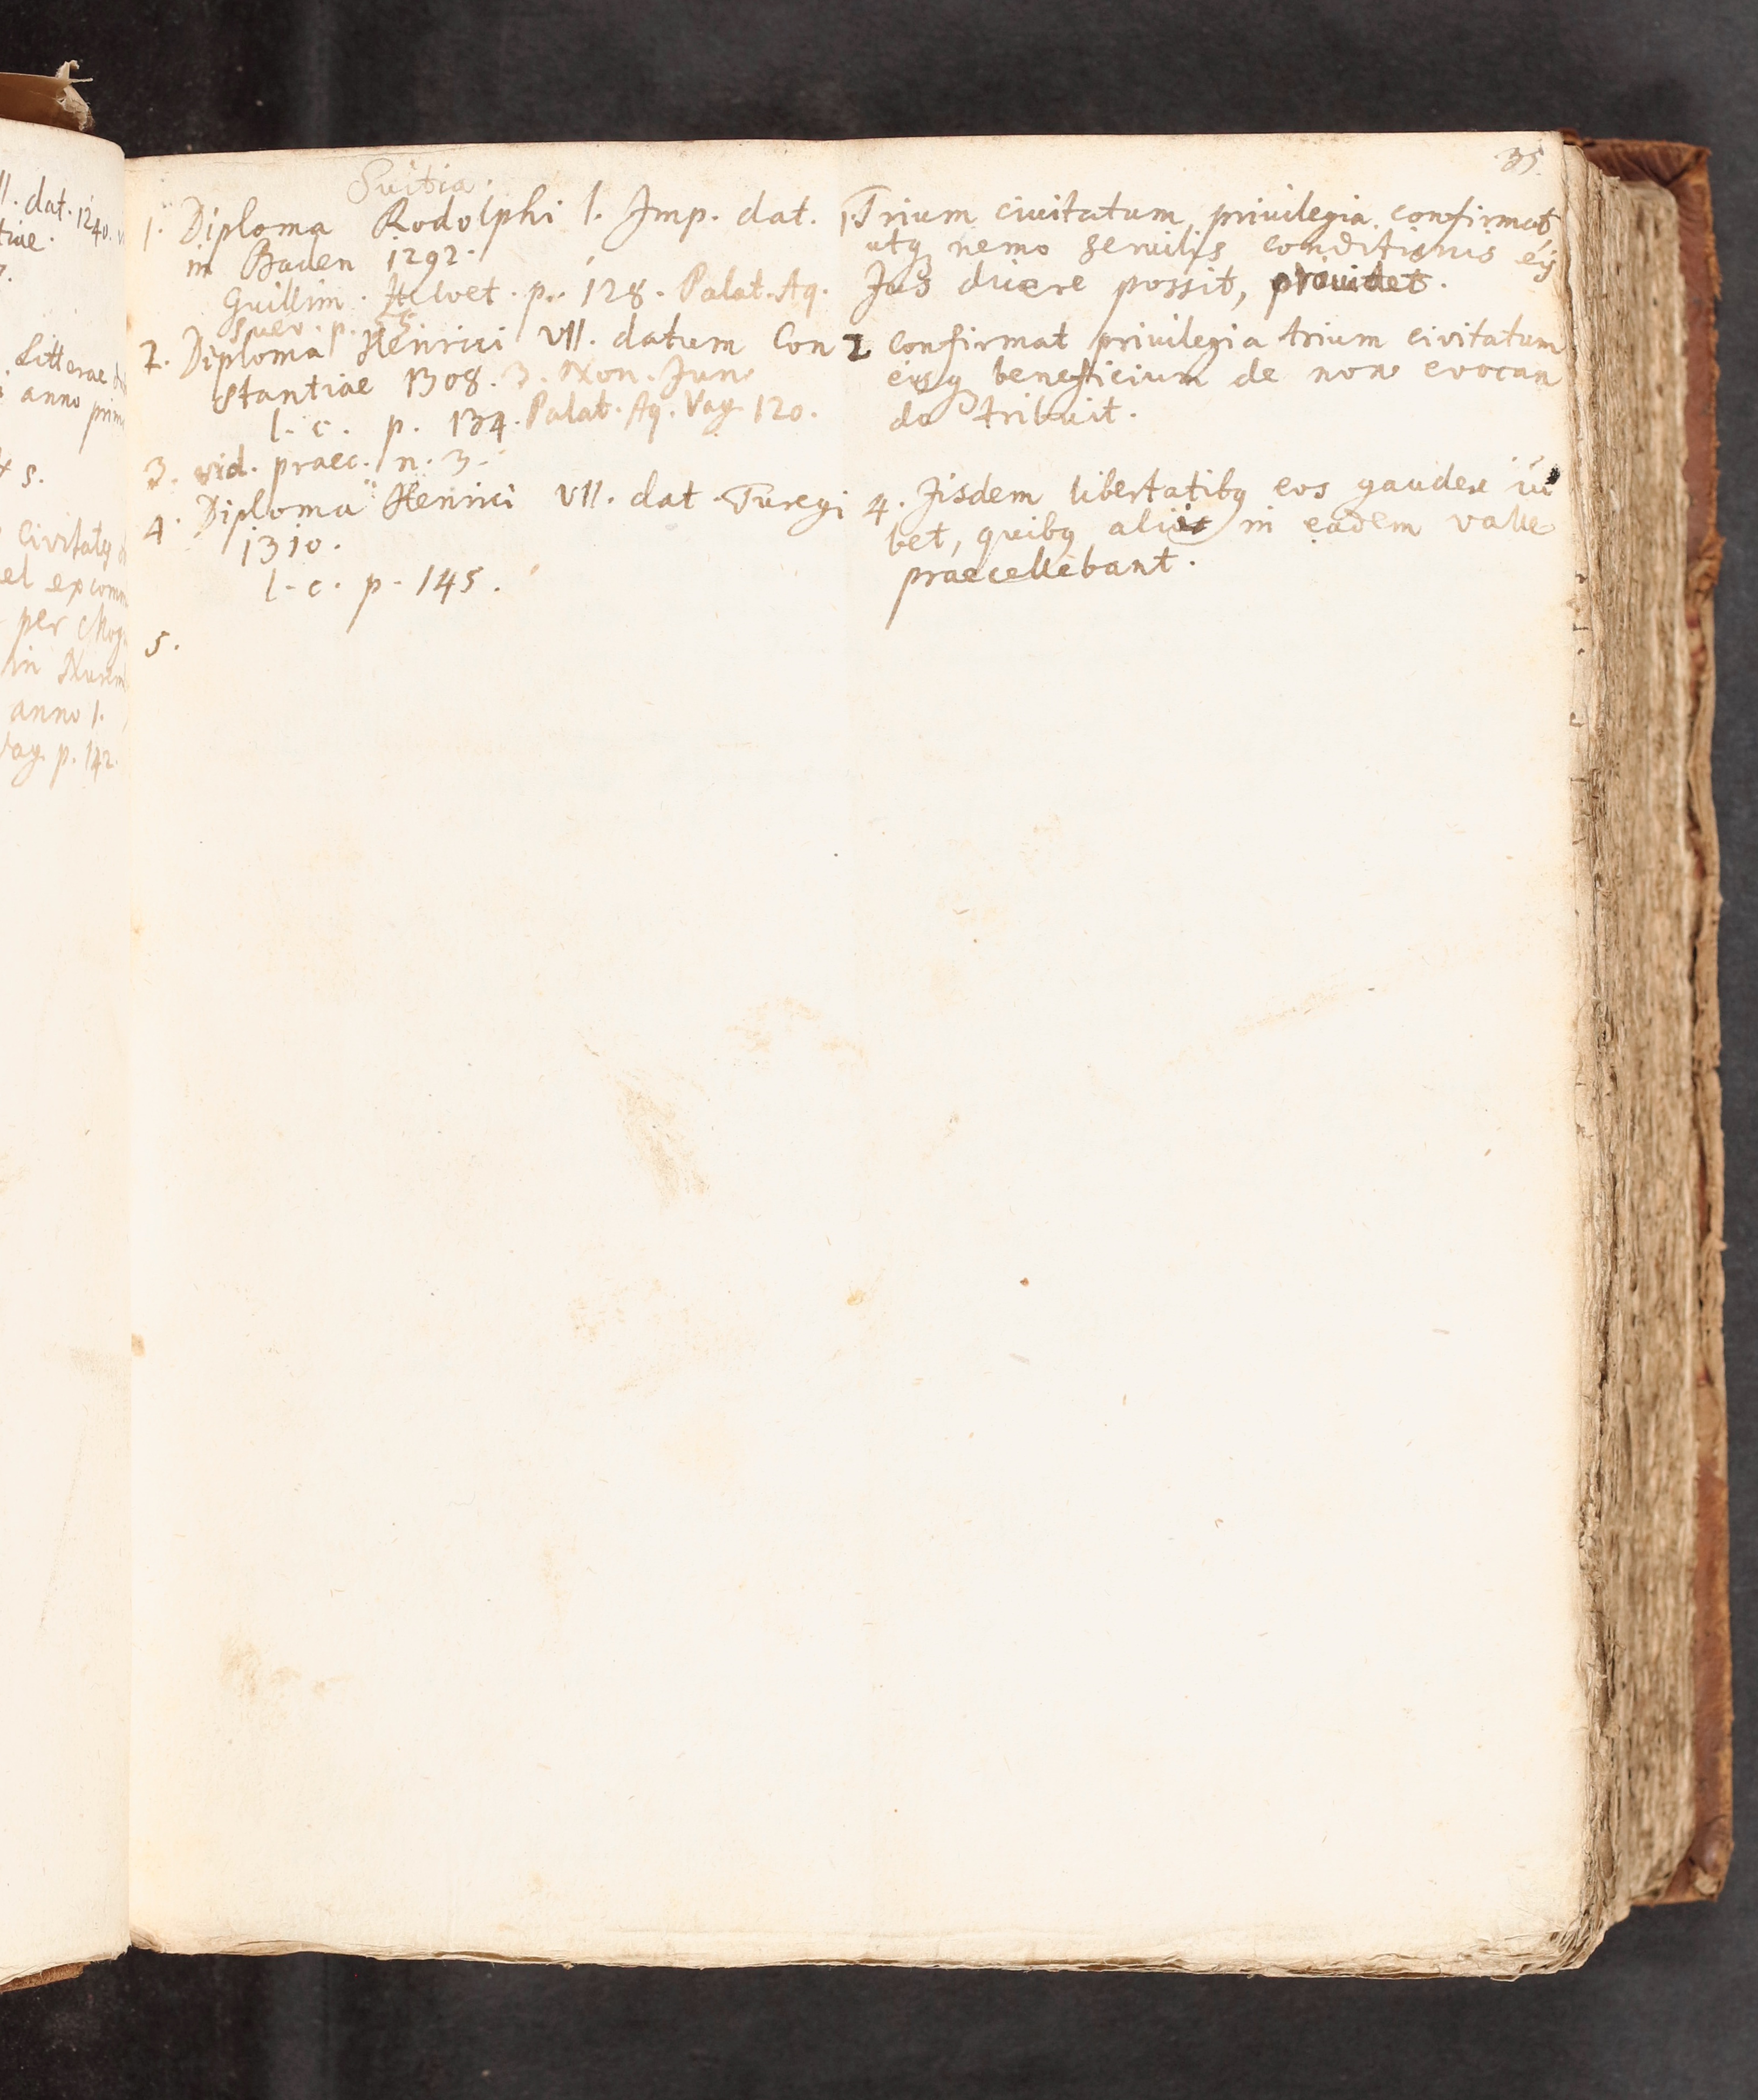 ll. dat. 1240.
tiae.
Litterae
anno prim
s.
Civitatq
el excomm
per Mog
in Nurem
anno 1.
Vag. p. 142.
35.
Suitia.
1. Diploma Rodolphi I. Imp. dat.
in Baden 1292.
Guillim. Helvet. p. 128. Palat. Aq.
Suev. p. 25.
2. Diploma Henrici VII. datum Con
stantiae 1308. 3. Non. Jun.
l. c. p. 134. Palat. Aq. Vag. 120.
3. vid. praec. n. 3.
4. Diploma Henrici VII. dat. Turegi
1310.
l. c. p. 145.
5.
1. Trium ciuitatum priuilegia confirmat
utq nemo seruilis conditionis eis
Jus dicere possit, prouidet.
2 confirmat priuilegia trium civitatum
eisq beneficium de non evocan
do tribuit.
4. Iisdem libertatibq eos gaudere iu
bet, quibq aliis in eadem valle
praecellebant.